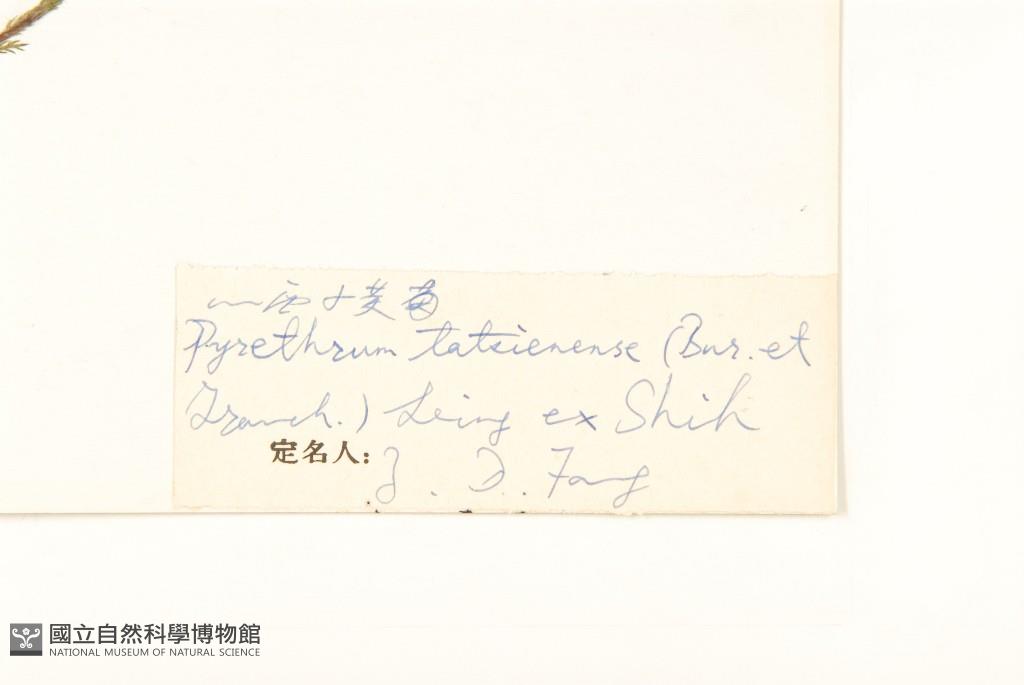 Pyrethrum tatsienense (Bur. et
Franch.) Ling ex Shih
定名人: Z. D. Fang
國立自然科學博物館
NATIONAL MUSEUM OF NATURAL SCIENCE